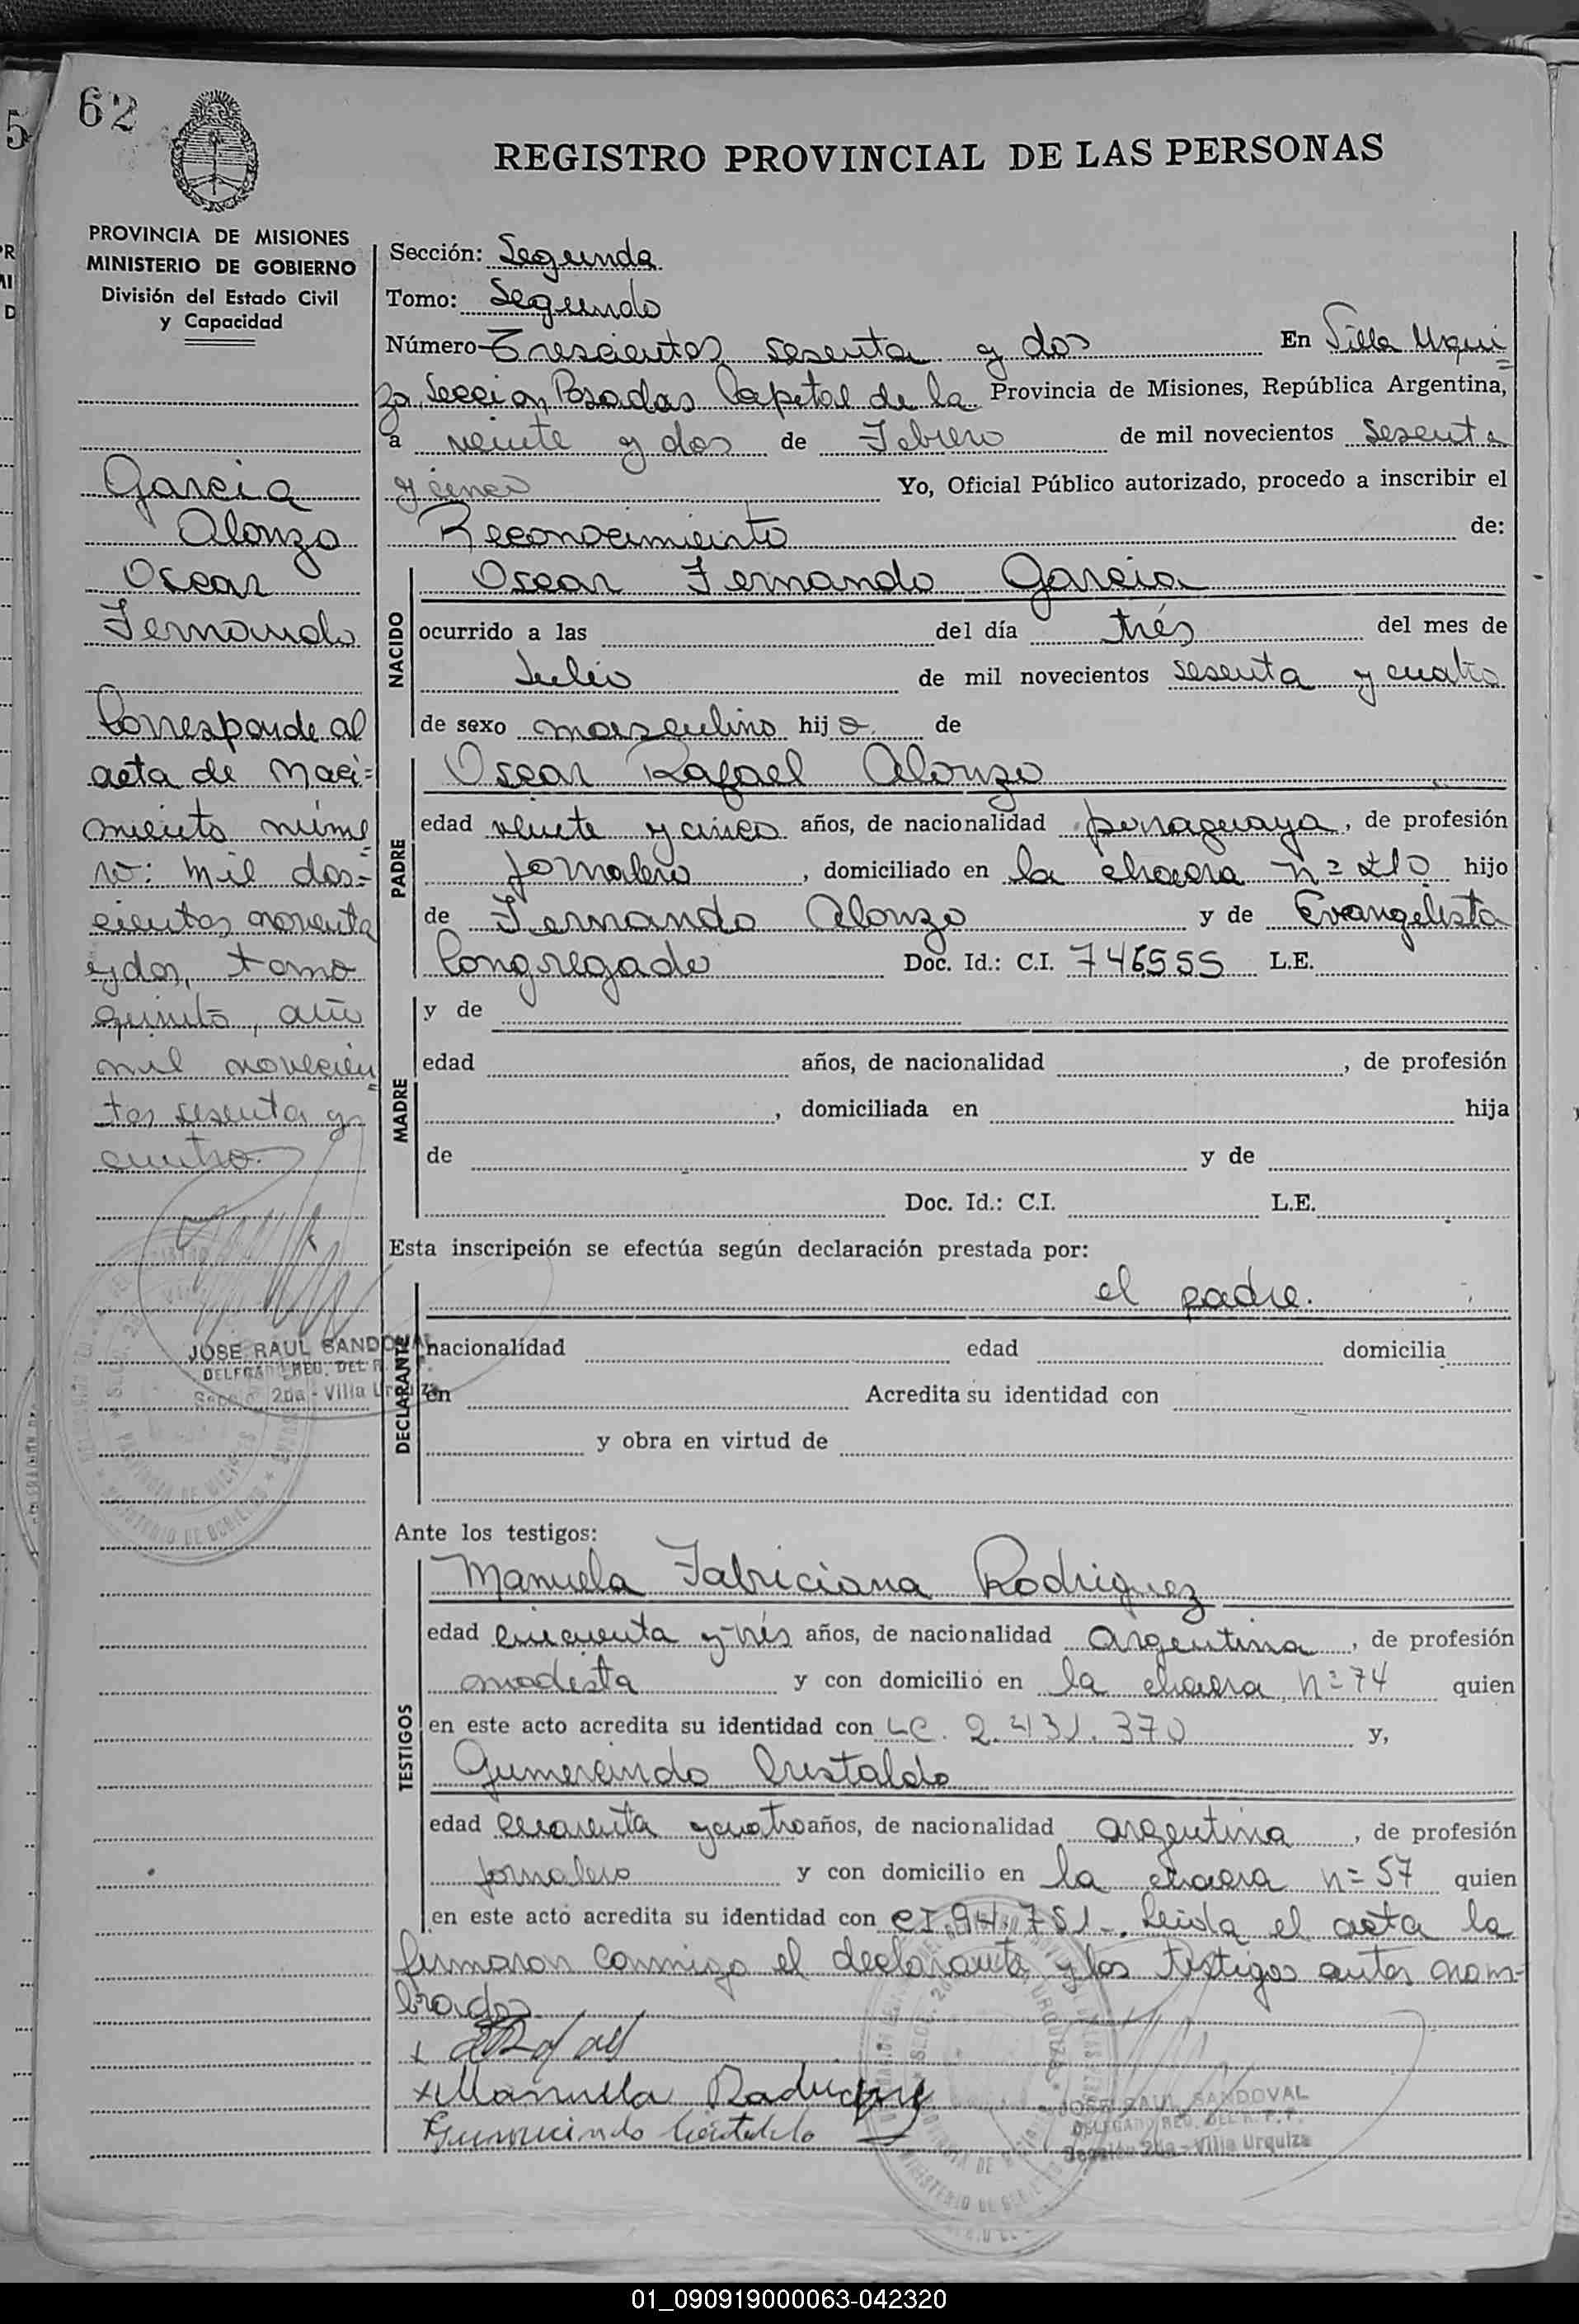 62
5
REGISTRO PROVINCIAL DE LAS PERSONAS
PROVINCIA DE MISIONES
MINISTERIO DE GOBIERNO
División del Estado Civil
y Capacidad
Garcia
Alonzo
Oscar
Fernando
Corresponde al
acta de Naci=
miento núme
ro: mil dos=
cientos noventa
y dos, tomo
quinto, año
mil novecien=
tos sesenta y
cuatro.
JOSE RAUL SANDOVAL
DELEGADO REG. DEL R.
Sección 2da - Villa Urquiza
Sección: Segunda
Tomo: Segundo
Número Trescientos sesenta y dos En Villa Urqui=
za Seccion Posadas Capital de la Provincia de Misiones, República Argentina,
a veinte y dos de Febrero de mil novecientos sesenta
y cinco Yo, Oficial Público autorizado, procedo a inscribir el
Reconocimiento de:
NACIDO
Oscar Fernando Garcia
ocurrido a las del día trés del mes de
Julio de mil novecientos sesenta y cuatro
de sexo masculino hijo de
PADRE
Oscar Rafael Alonzo
edad veinte y cinco años, de nacionalidad paraguaya, de profesión
jornalero, domiciliado en la chacra nº 210 hijo
de Fernando Alonzo y de Evangelista
Congregado Doc. Id.: C.I. 746555 L.E.
MADRE
y de
edad años, de nacionalidad , de profesión
, domiciliada en hija
de y de
Doc. Id.: C.I. L.E.
Esta inscripción se efectúa según declaración prestada por:
DECLARANTE
el padre.
nacionalidad edad domicilia
en Acredita su identidad con
y obra en virtud de
Ante los testigos:
TESTIGOS
Manuela Fabriciana Rodriguez
edad cincuenta y trés años, de nacionalidad argentina, de profesión
modista y con domicilio en la chacra nº 74 quien
en este acto acredita su identidad con LC. 2.431.370 y,
Gumercindo Cristaldo
edad cuarenta y cuatro años, de nacionalidad argentina, de profesión
jornalero y con domicilio en la chacra nº 57 quien
en este acto acredita su identidad con CI. 94.751-. Leida el acta la
firmaron conmigo el declarante y los testigos antes nom-
brados
x Manuela
Gumercindo
JOSE RAUL SANDOVAL
DELEGADO REG. DEL R. P. P.
Sección 2da - Villa Urquiza
01_090919000063-042320